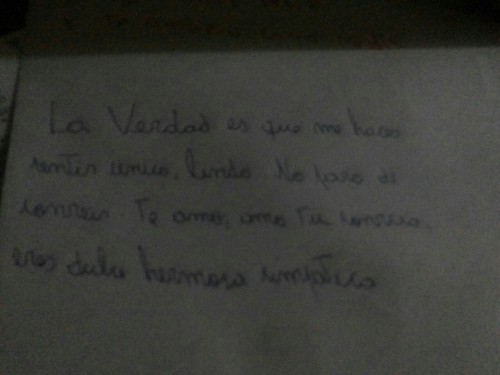 La Verdad es que me haces
sentir unico, lindo. No paro de
sonreir. Te amo, amo Tu sonrisa,
eres dulce hermosa simpatica